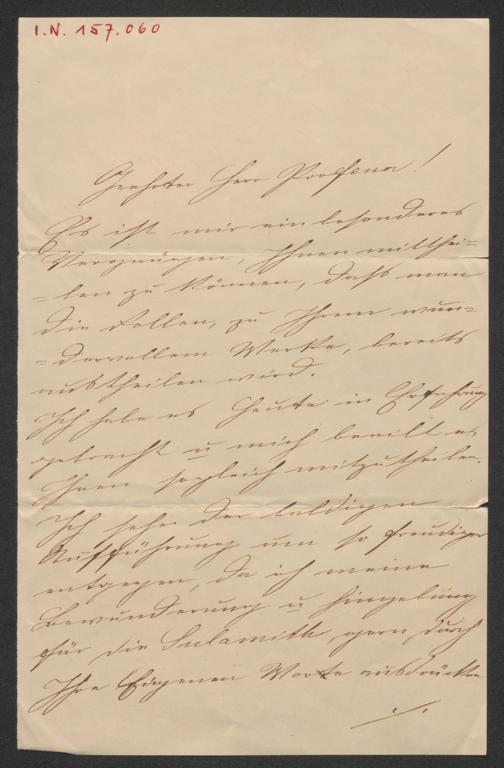 I.N. 157.060
Geehrter Herr Professor!
Es ist mir ein besonderes
Vergnügen, Ihnen mitthei=
=len zu können, dass man
die Rollen, zu Ihrem wun=
=dervollem Werke, bereits
austheilen wird.
Ich habe es heute in Erfahrung
gebracht u mich beeilt es
Ihnen sogleich mitzutheilen.
Ich sehe der baldigen
Aufführung um so freudiger
entgegen, da ich meine
Bewunderung u Hingebung
für die Sulamith, gern durch
Ihre Eigenen Worte ausdrücken
./.